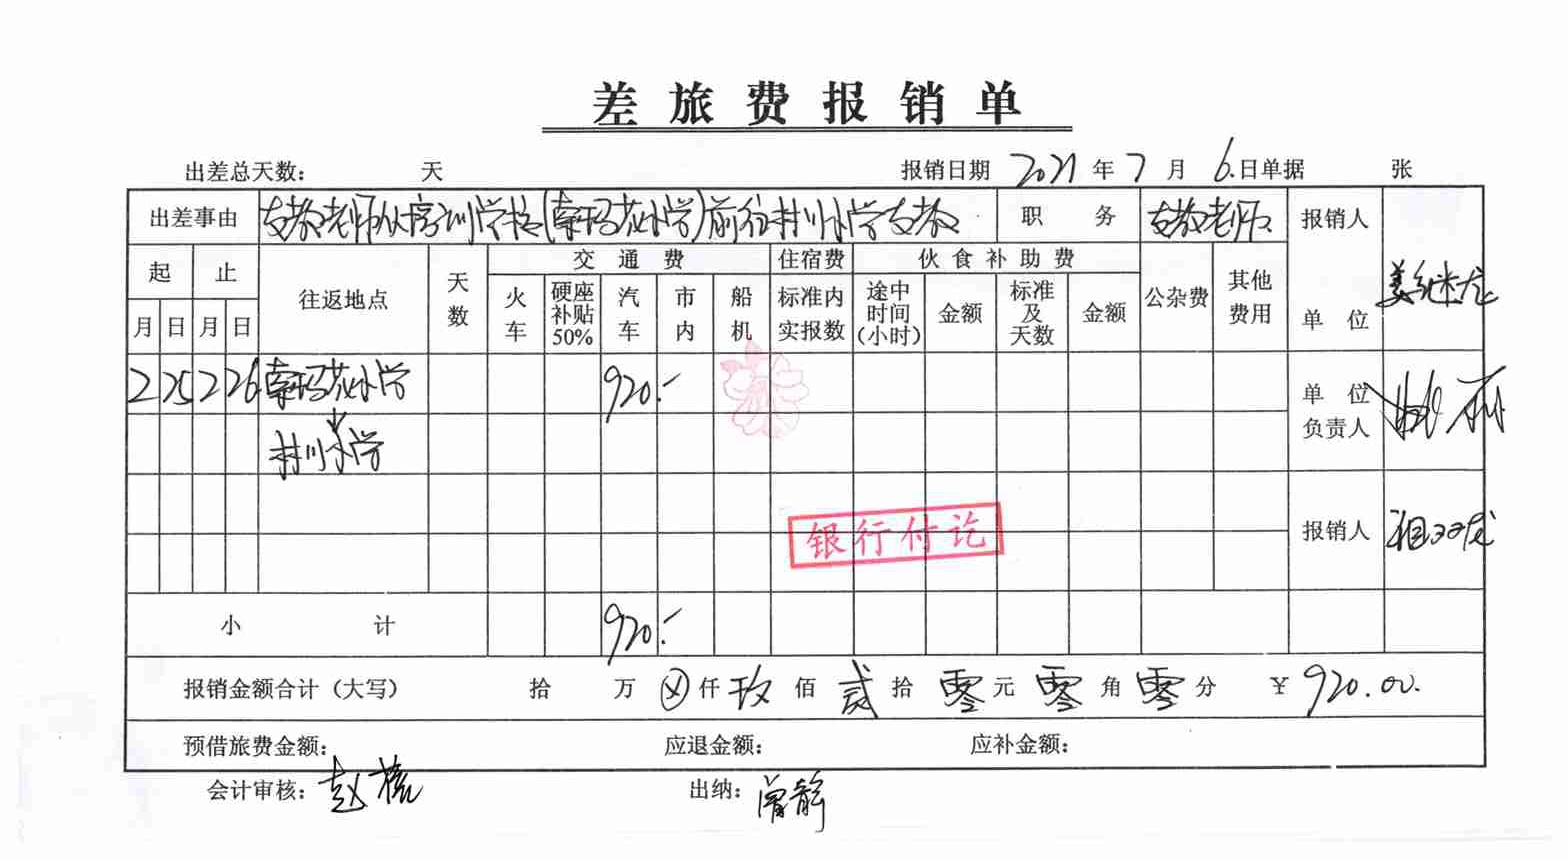 差旅费报销单
出差总天数: 天 报销日期 2021 年 7 月 6 日 单据 张
出差事由 支教老师从培训学校(索玛花小学)前往村小学支教 职务 支教老师 报销人
起 止 往返地点 天数 交通费 住宿费 伙食补助费 公杂费 其他费用
月 日 月 日 火车 硬座补贴50% 汽车 市内 船机 标准内实报数 途中时间(小时) 金额 标准及天数 金额 单位
2 25 2 26 索玛花小学 920.- 单位负责人
小学
银行付讫
报销人
小计 920.-
报销金额合计(大写) 拾 万 ⊗ 仟 玖 佰 贰 拾 零 元 零 角 零 分 ¥ 920.00.
预借旅费金额: 应退金额: 应补金额:
会计审核: 赵 出纳: 曾静